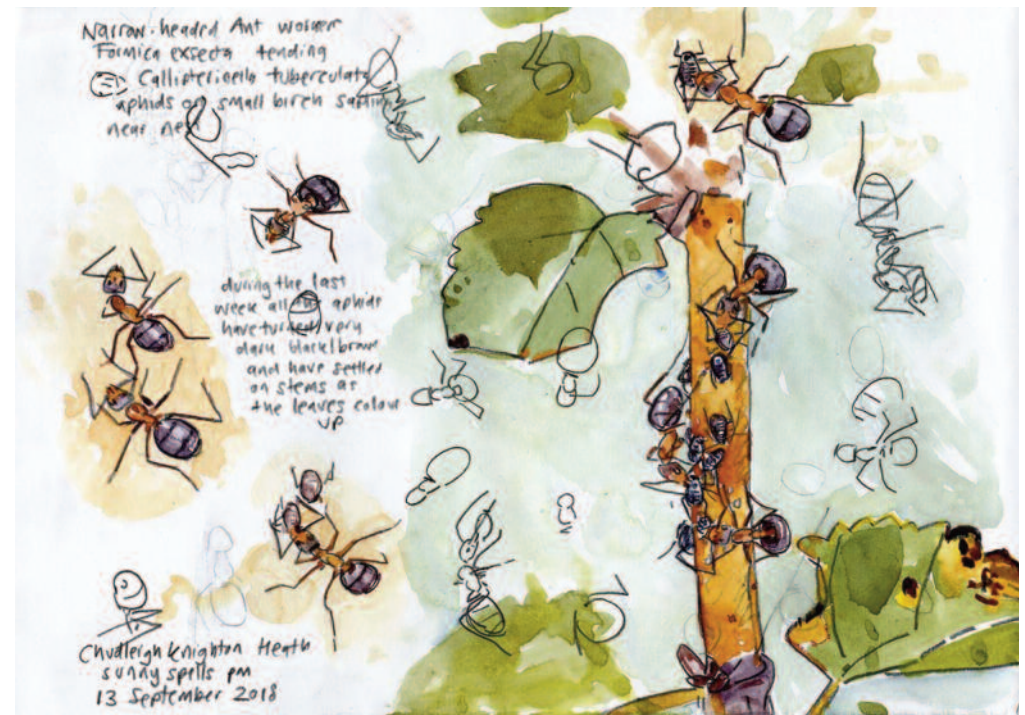 Narrow-headed Ant worker
Formica exsecta tending
Callipterinella tuberculata
aphids on small birch sapling
near nest
during the last
week all the aphids
have turned very
dark black/brown
and have settled
on stems as
the leaves colour
up
Chudleigh Knighton Heath
sunny spells pm
13 September 2018